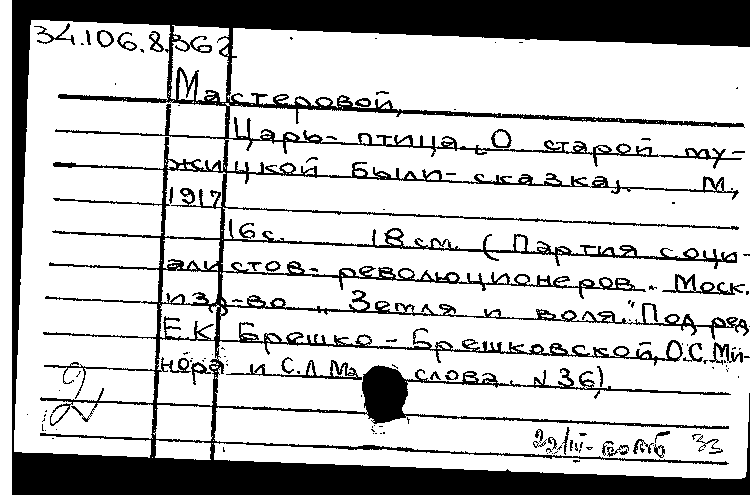 34.106.8.362
Мастеровой,
Царь-птица. (О старой му-
жицкой были-сказка). М.,
1917
16 с. 18 см. (Партия соци-
алистов-революционеров. Моск.
изд-во "Земля и воля." Под ред
Е.К. Брешко-Брешковской, О.С. Ми-
нора и С.Л. Ма слова. N 36).
2
22/IV-
33